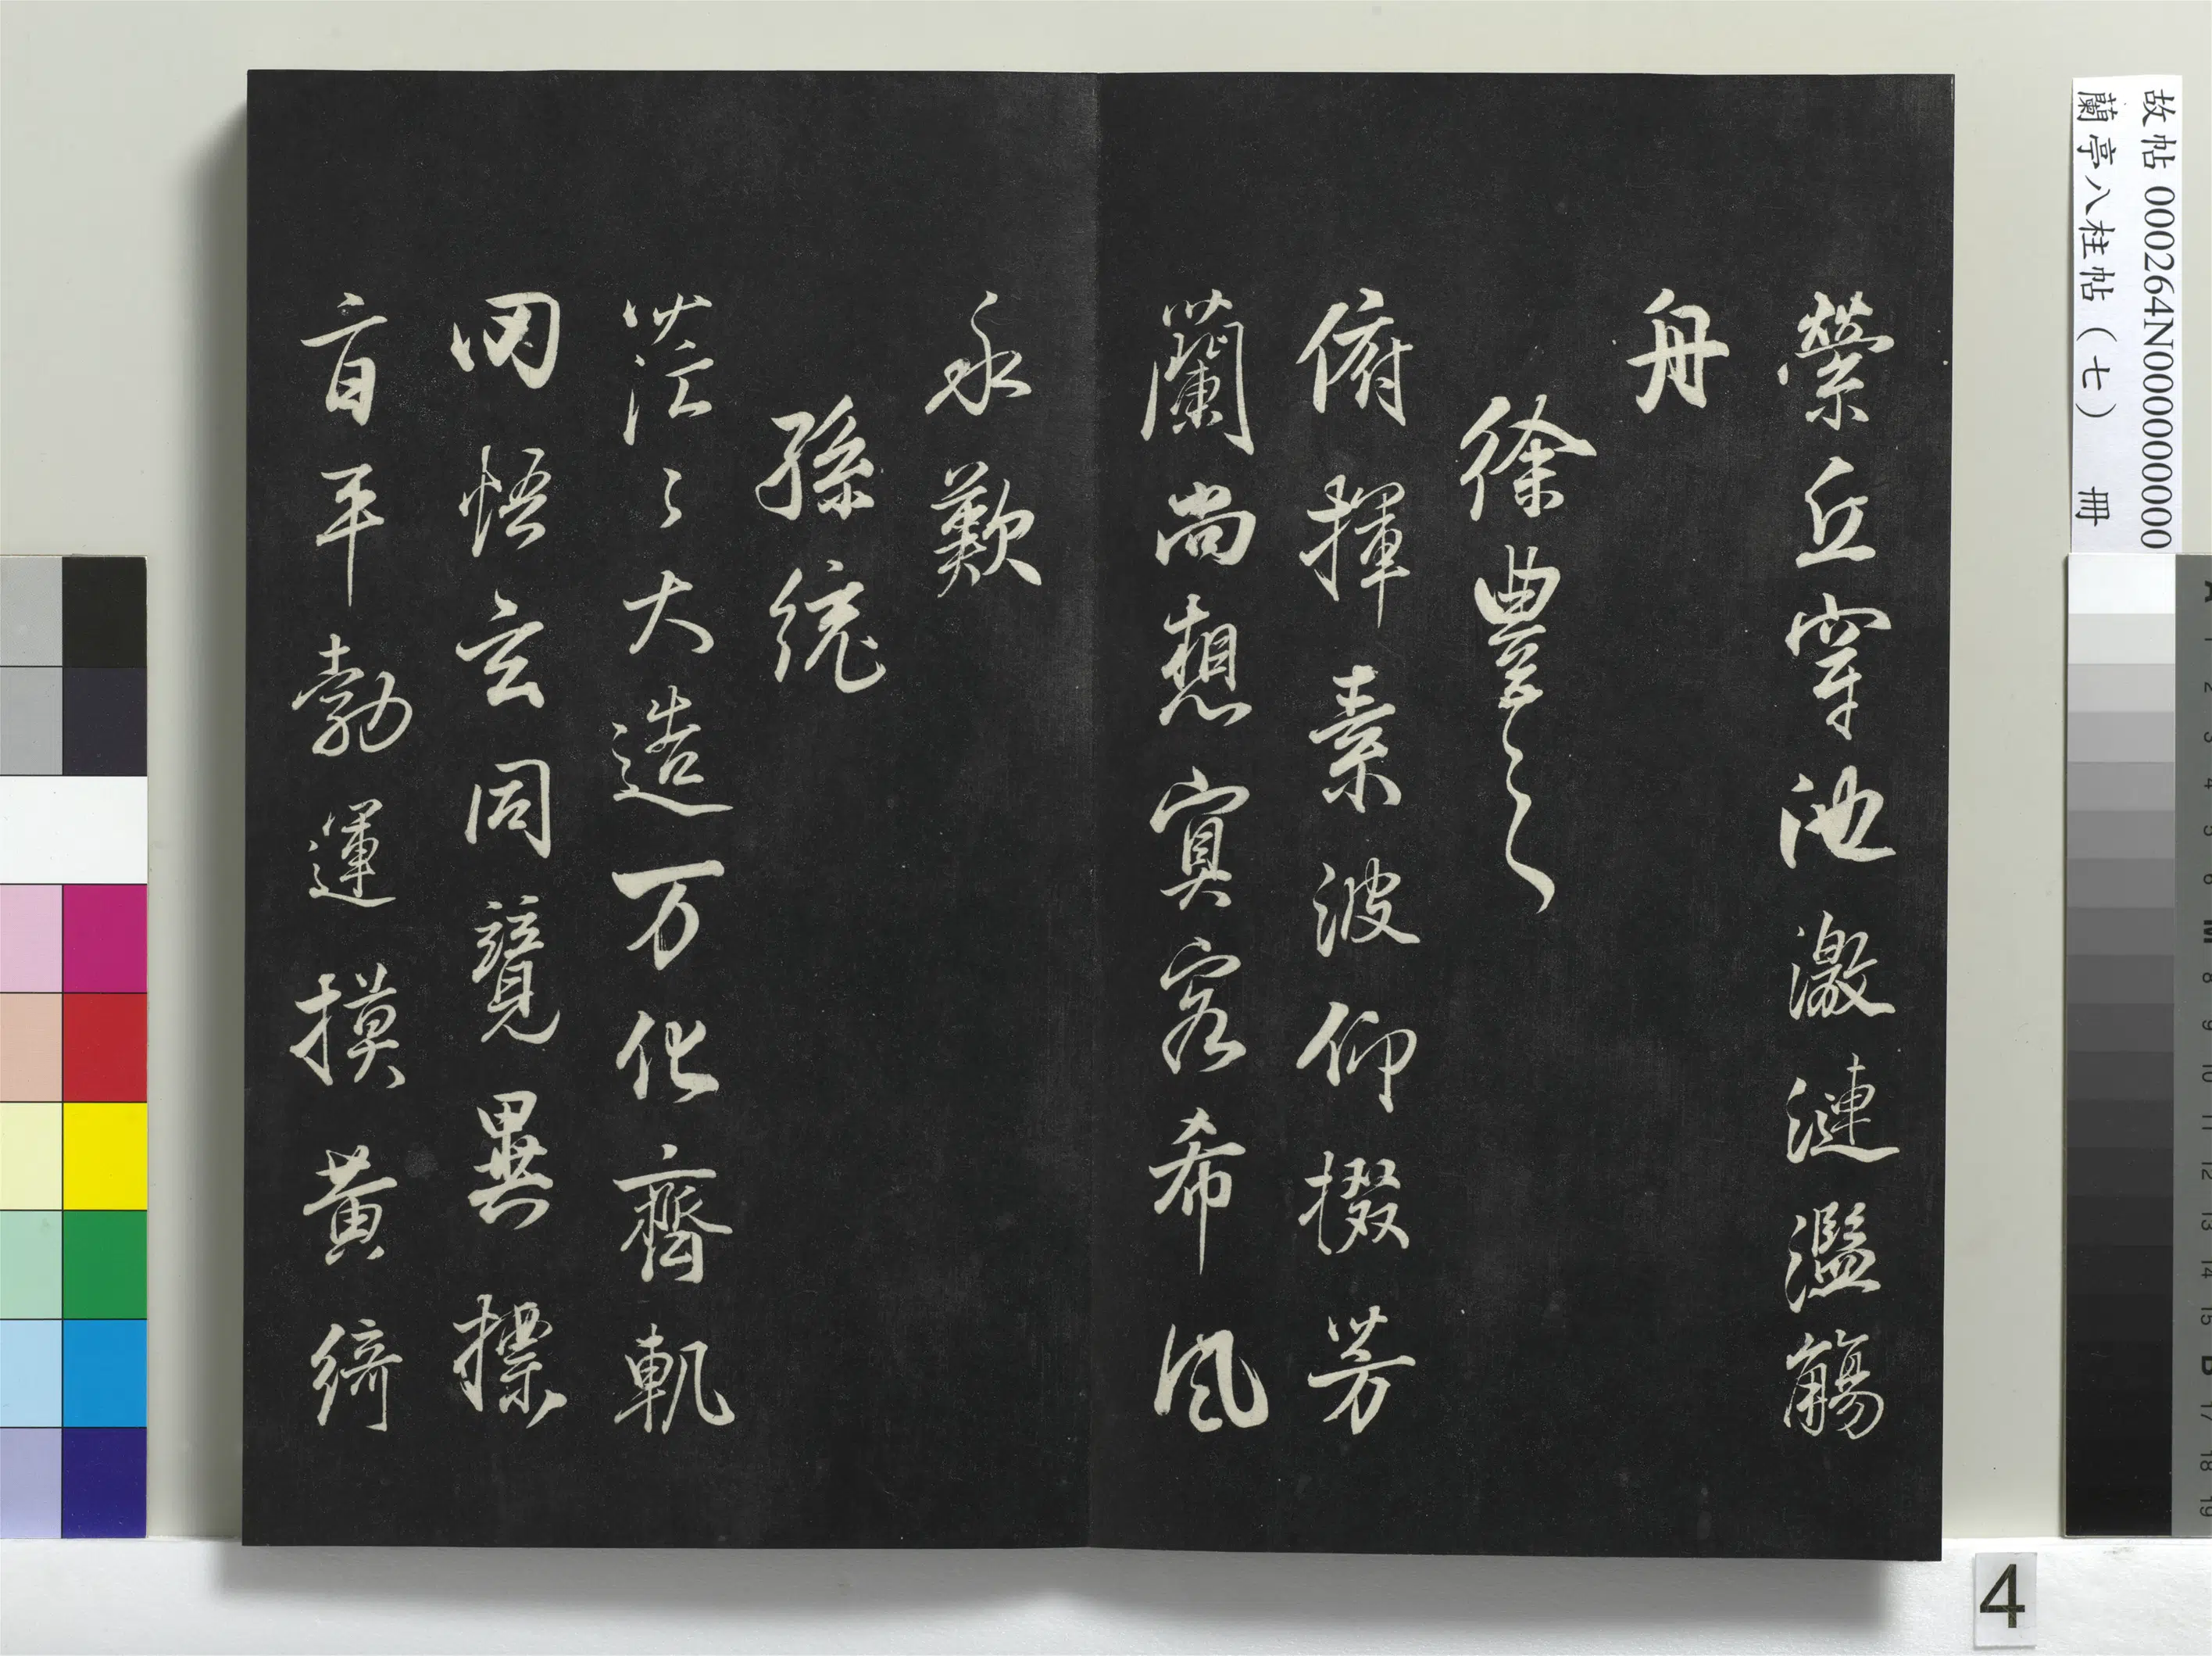 故帖 000264N000000000
蘭亭八柱帖（七） 冊
縈丘穿池激漣濫觴
舟
徐豐之
俯揮素波仰掇芳
蘭尚想客希風
永歎
孫統
茫〻大造万化齊軌
罔悟玄同競異摽
旨平勃運摸黃綺
4